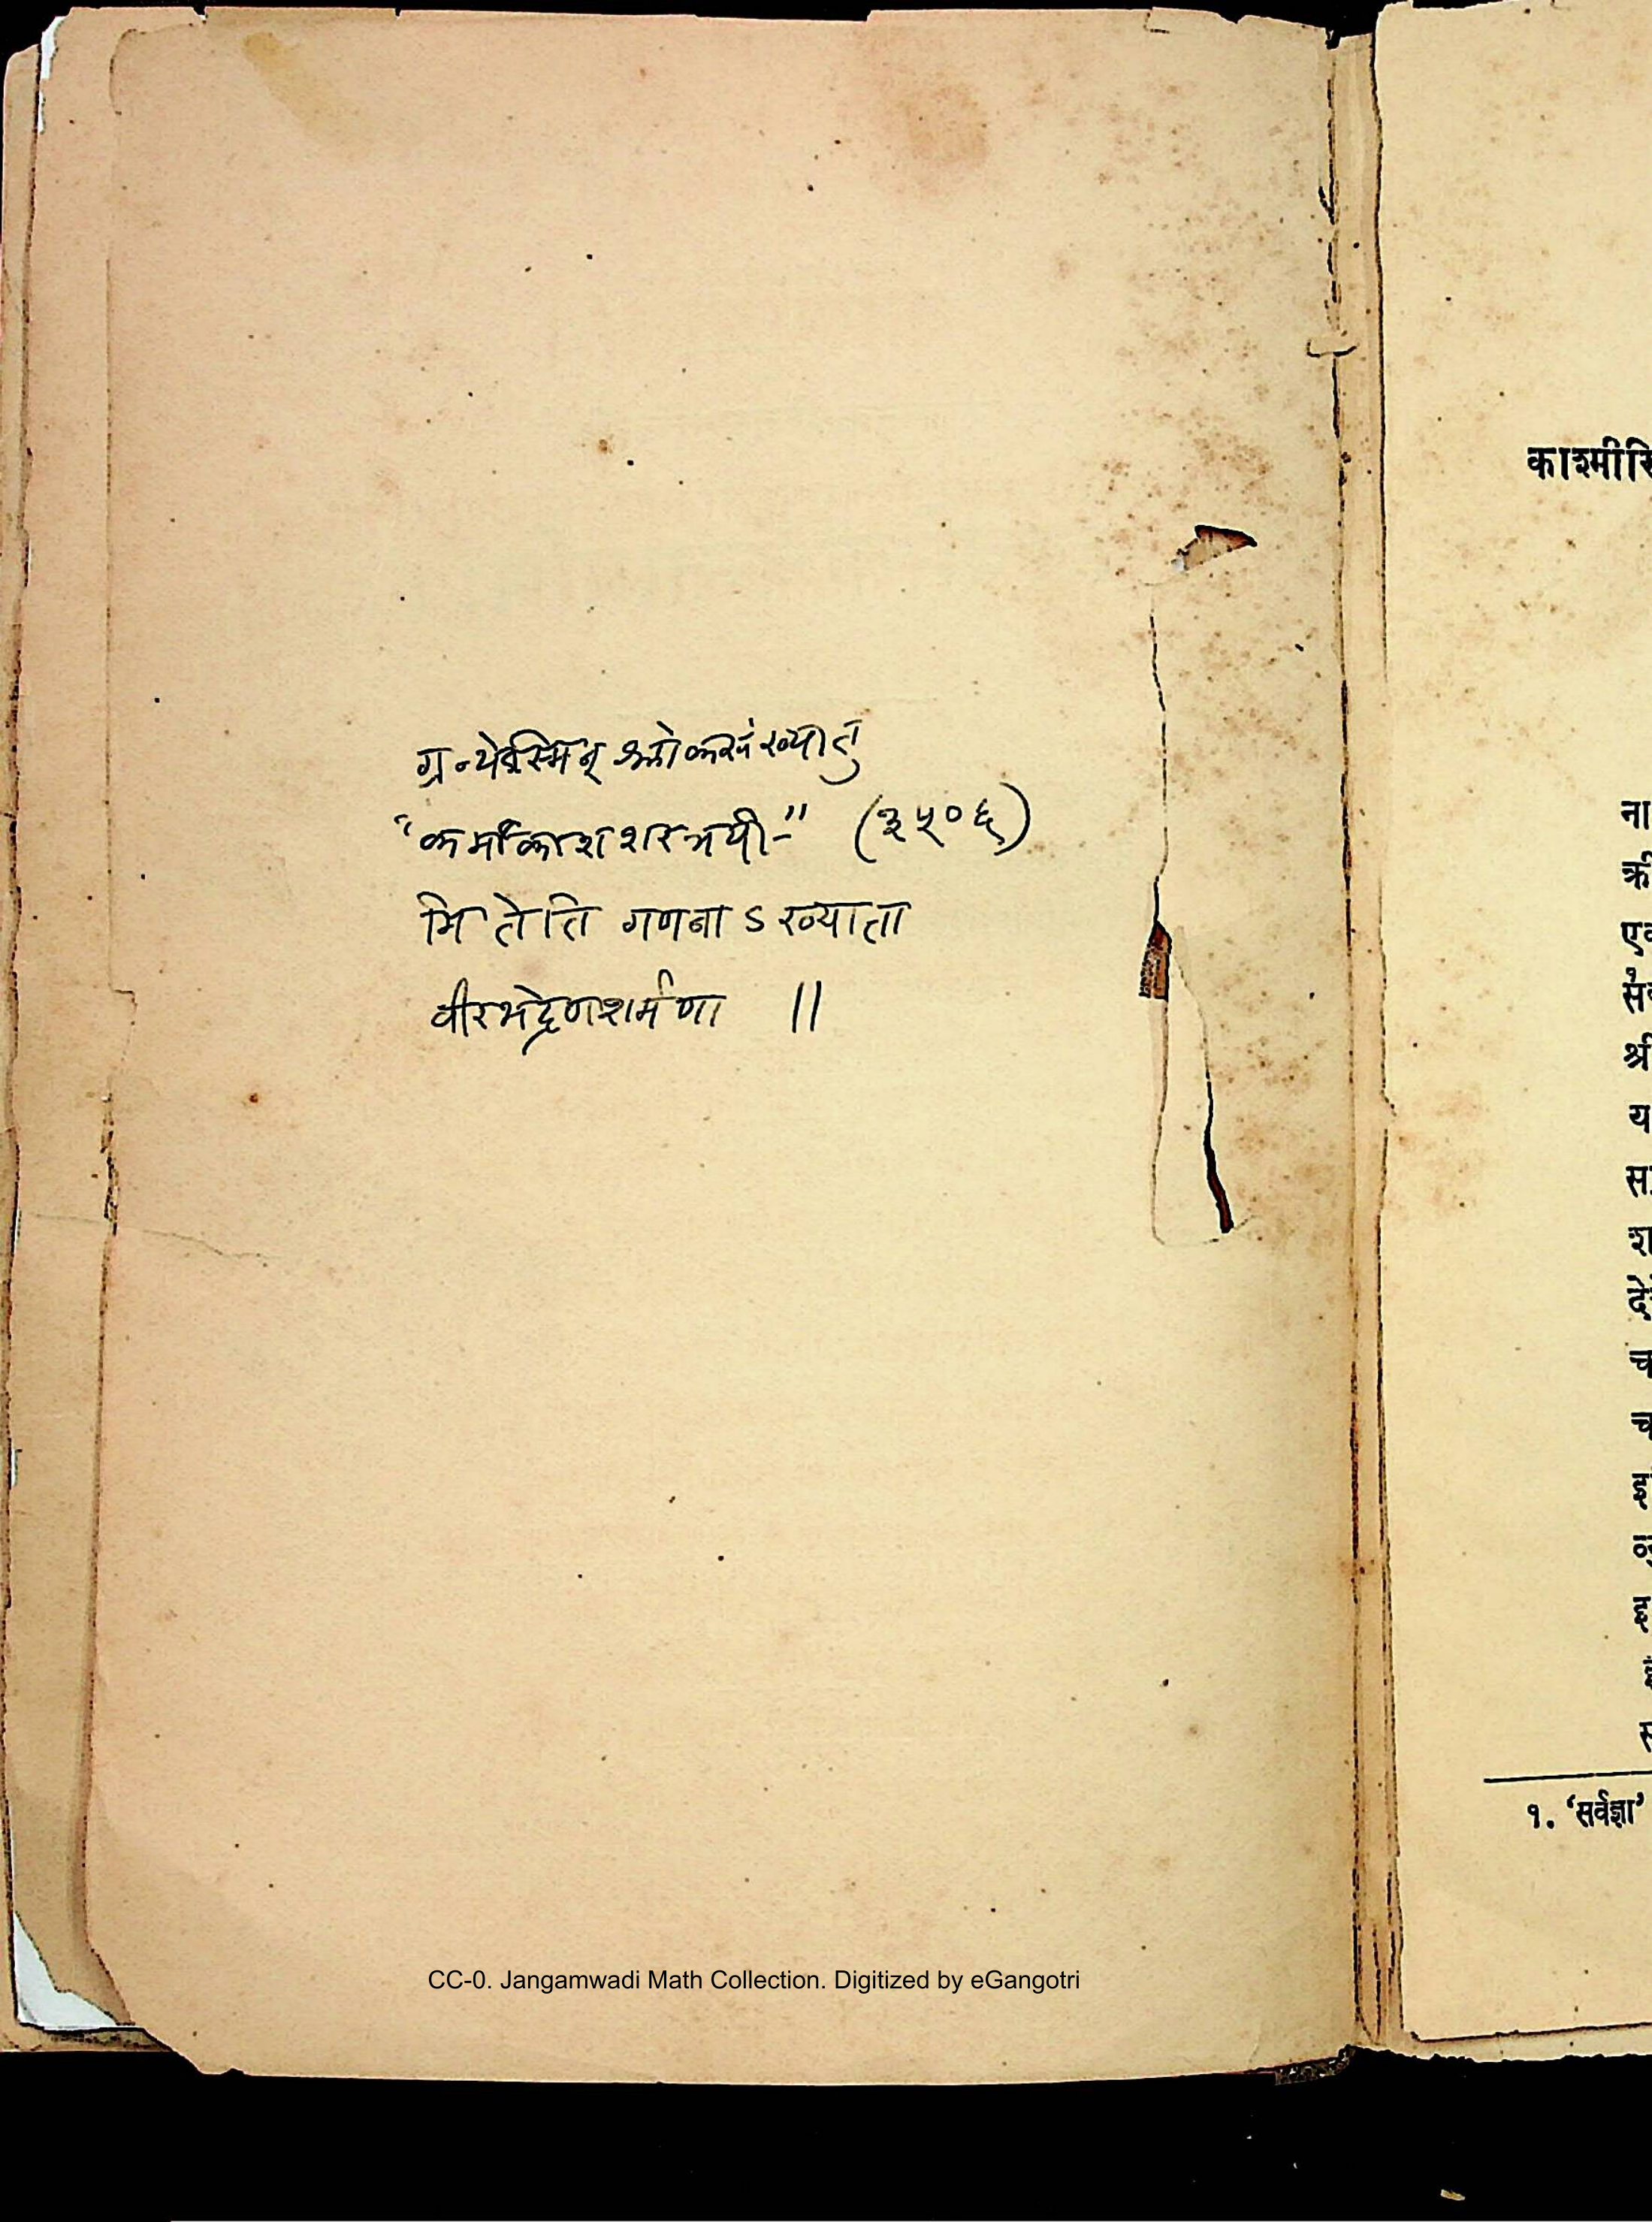 ग्रन्थेऽस्मिन् श्लोकसंख्या तु
"कर्माकाशशरत्रयी-" (३५०६)
मितेति गणनाऽऽख्याता
वीरभद्रेणशर्मणा ॥
CC-0. Jangamwadi Math Collection. Digitized by eGangotri
काश्मीरि
ना
श्री
य
च
च
१. 'सर्वज्ञा'